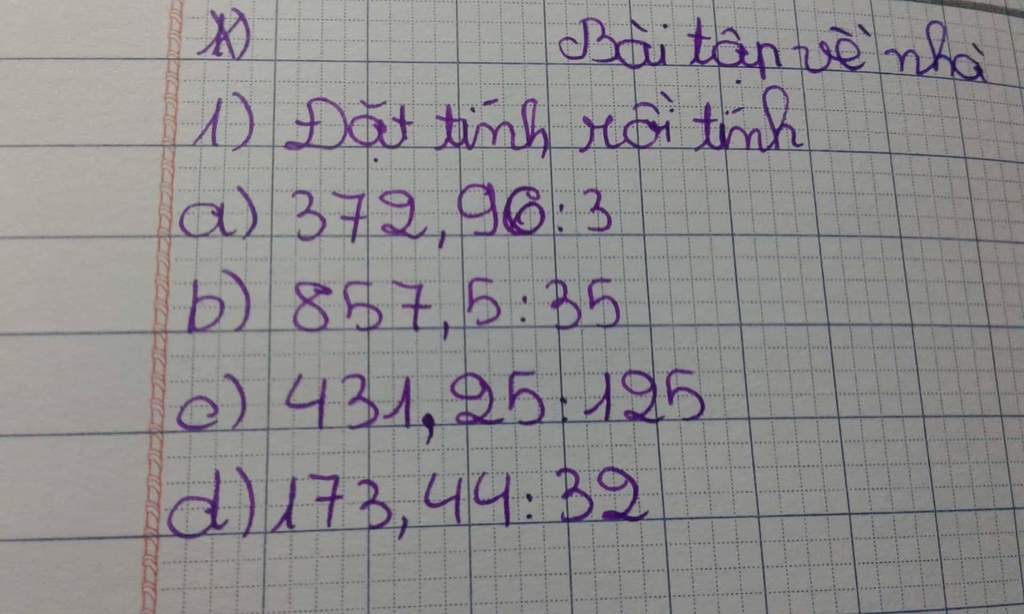 *) Bài tập về nhà
1) Đặt tính rồi tính
a) 372,96:3
b) 857,5:35
c) 431,25:125
d) 173,44:32